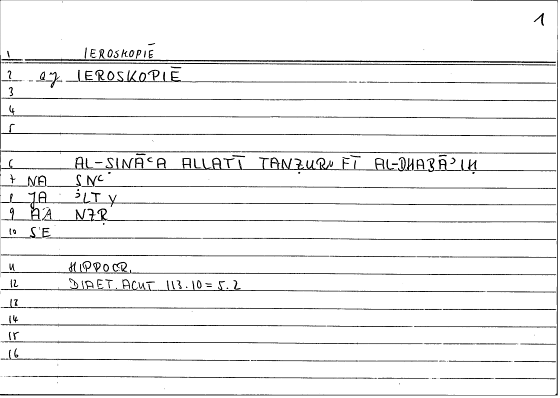 1
1 IEROSKOPIĒ
2 az IEROSKOPIĒ
3
4
5
6 AL-ṢINĀʿA ALLATĪ TANẒURU FĪ AL-DHABĀʾIḤ
7 NA ṢNʿ
8 JA ʾLTY
9 AA NẒR
10 SE
11 HIPPOCR.
12 DIAET. ACUT 113.10 = 5.2
13
14
15
16